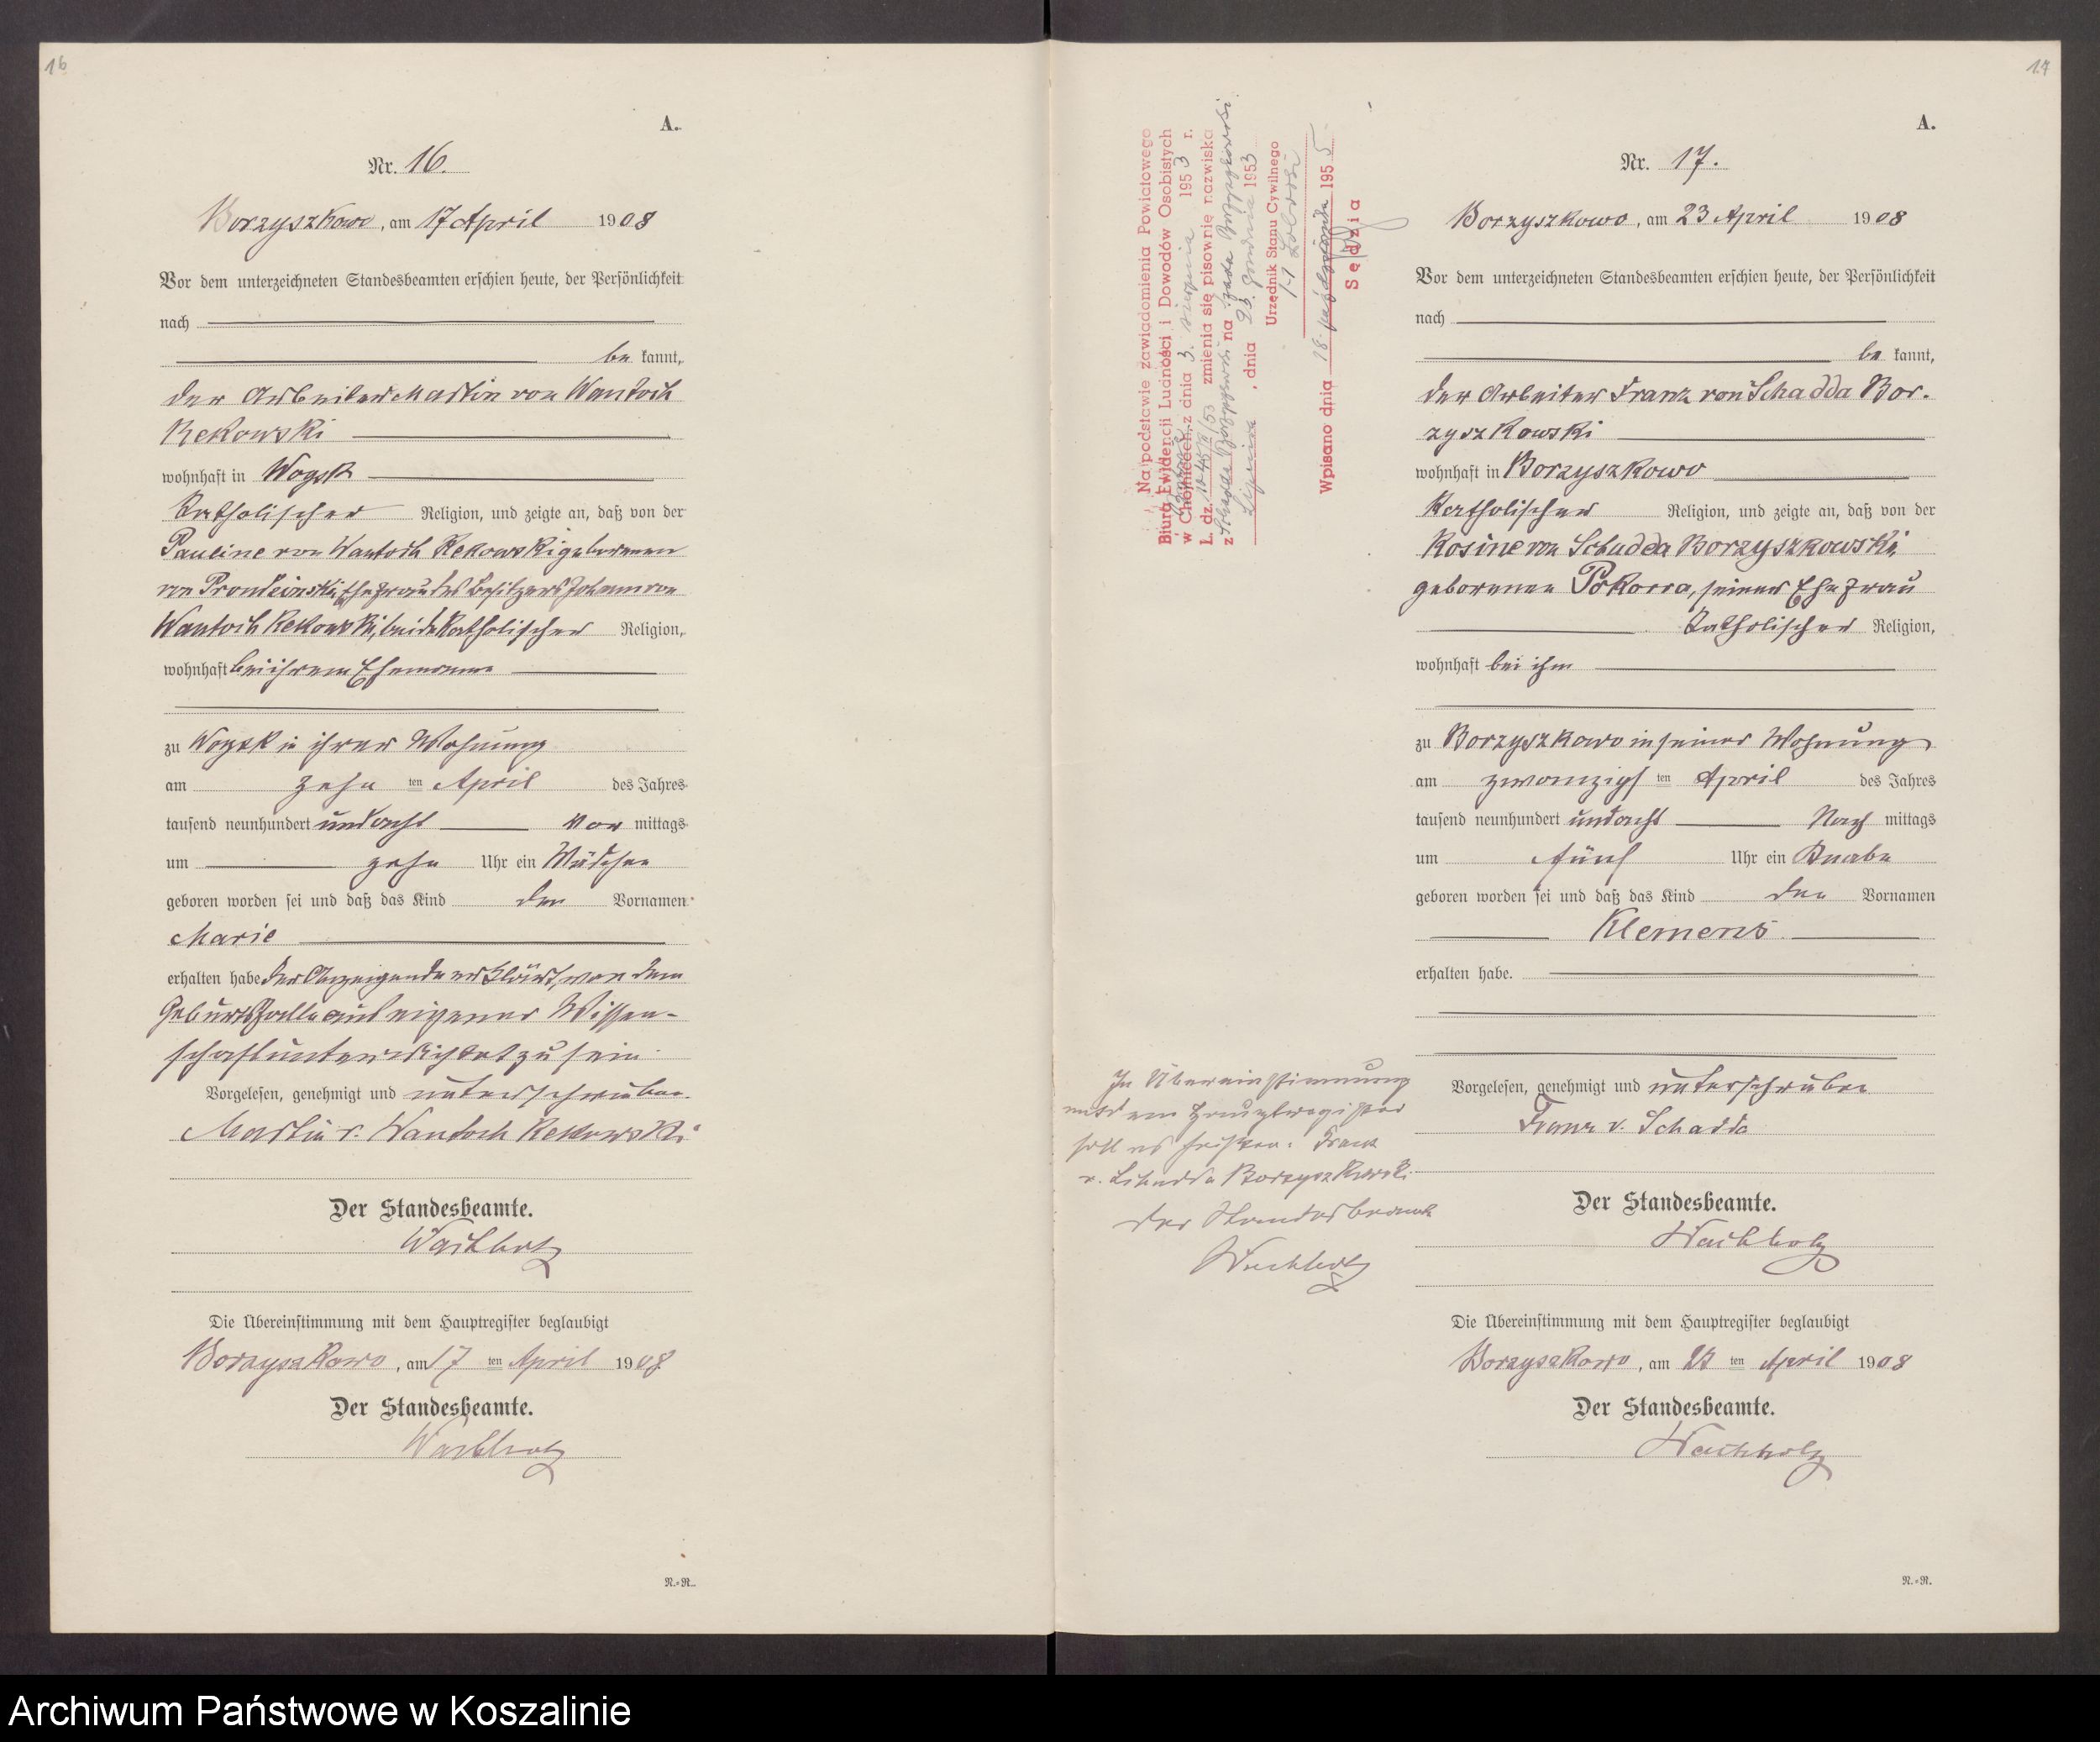 16
A.
Nr. 16.
Borzyszkowo, am 17 April 1908
Vor dem unterzeichneten Standesbeamten erschien heute, der Persönlichkeit
nach
be kannt,
der Arbeiter Martin von Wantoch
Rekowski
wohnhaft in Wogsk
katholischer Religion, und zeigte an, daß von der
Pauline von Wantoch Rekowski geborenen
von Prondzinski, Ehefrau des Besitzers Johann von
Wantoch Rekowski, beide katholischer Religion,
wohnhaft bei ihrem Ehemanne
zu Wogsk in ihrer Wohnung
am zehn ten April des Jahres
tausend neunhundert und acht Vor mittags
um zehn Uhr ein Mädchen
geboren worden sei und daß das Kind den Vornamen
Marie
erhalten habe. Der Anzeigende erklärt, von dem
Geburtsfalle aus eigener Wissen-
schaft unterrichtet zu sein.
Vorgelesen, genehmigt und unterschrieben
Martin v. Wantoch Rekowski
Der Standesbeamte.
Wachholz
Die Übereinstimmung mit dem Hauptregister beglaubigt
Borzyszkowo, am 17 ten April 1908
Der Standesbeamte.
Wachholz
N.=R.
17
Na podstawie zawiadomienia Powiatowego
Biura Ewidencji Ludności i Dowodów Osobistych
w Chojnicach z dnia 3. sierpnia 1953 r.
L. dz. zmienia się pisownię nazwiska
z na
Lipnica, dnia 1953
Urzędnik Stanu Cywilnego
Wpisano dnia 18. października 1955
Sędzia
A.
Nr. 17.
Borzyszkowo, am 23 April 1908
Vor dem unterzeichneten Standesbeamten erschien heute, der Persönlichkeit
nach
be kannt,
der Arbeiter Franz von Schadda Bor.
zyszkowski
wohnhaft in Borzyszkowo
katholischer Religion, und zeigte an, daß von der
Rosine von Schadda Borzyszkowski,
geborenen Pokorra, seiner Ehefrau
katholischer Religion,
wohnhaft bei ihm
zu Borzyszkowo in seiner Wohnung
am zwanzigs ten April des Jahres
tausend neunhundert und acht Nach mittags
um fünf Uhr ein Knabe
geboren worden sei und daß das Kind den Vornamen
Klemens
erhalten habe.
Vorgelesen, genehmigt und unterschrieben
Franz v. Schadda
In Übereinstimmung
mit dem Hauptregister
soll es heißen: Franz
v. Schadda Borzyszkowski
Der Standesbeamte
Wachholz
Der Standesbeamte.
Wachholz
Die Übereinstimmung mit dem Hauptregister beglaubigt
Borzyszkowo, am 23 ten April 1908
Der Standesbeamte.
Wachholz
N.=R.
Archiwum Państwowe w Koszalinie